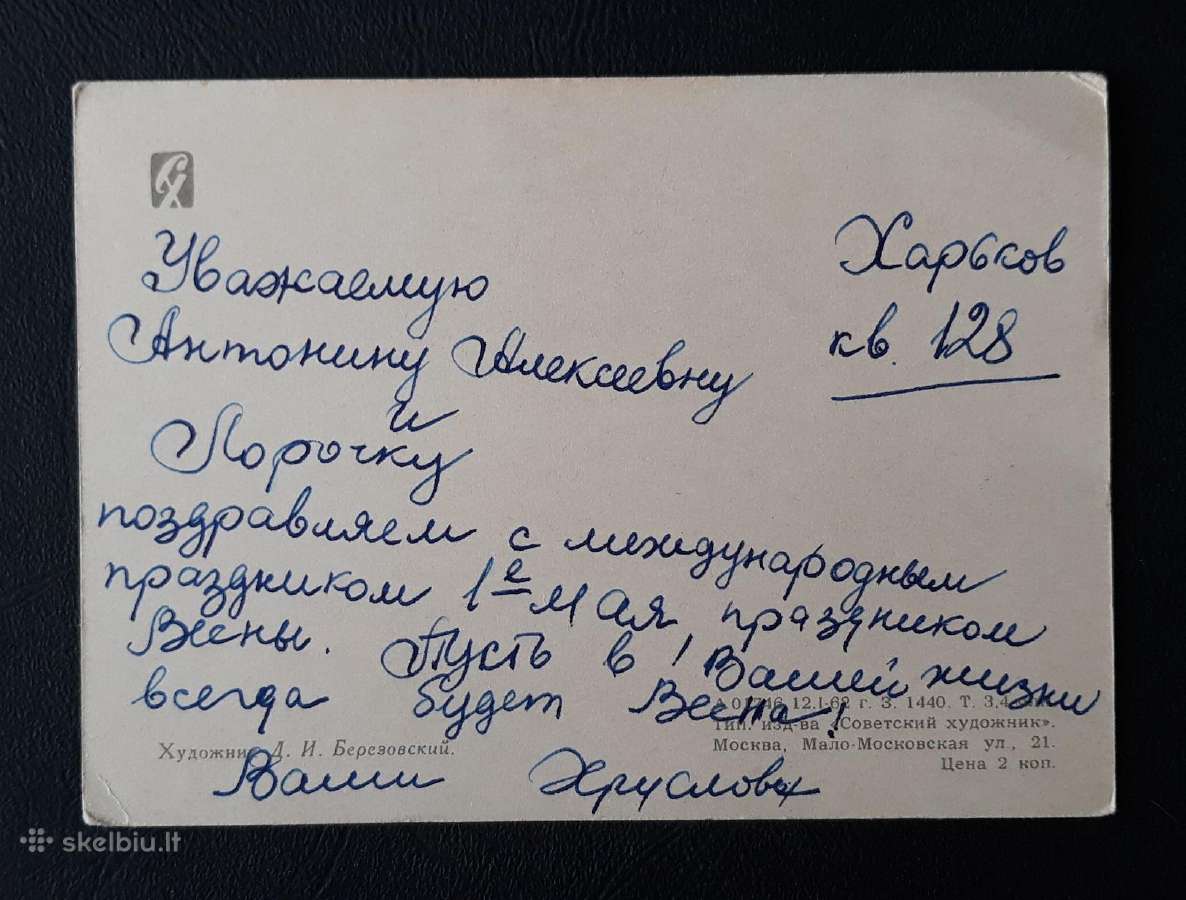 Уважаемую
Харьков
Антонину Алексеевну
кв. 128
и
Лорочку
поздравляем с международным
праздником 1е мая праздником
Весны. Пусть в Вашей жизни
всегда будет Весна!
12.I-62 г. З. 1440. Т.
Тип. изд-ва «Советский художник».
Москва, Мало-Московская ул., 21.
Цена 2 коп.
Художник Д. И. Березовский.
Ваши Хрусловы
skelbiu.lt